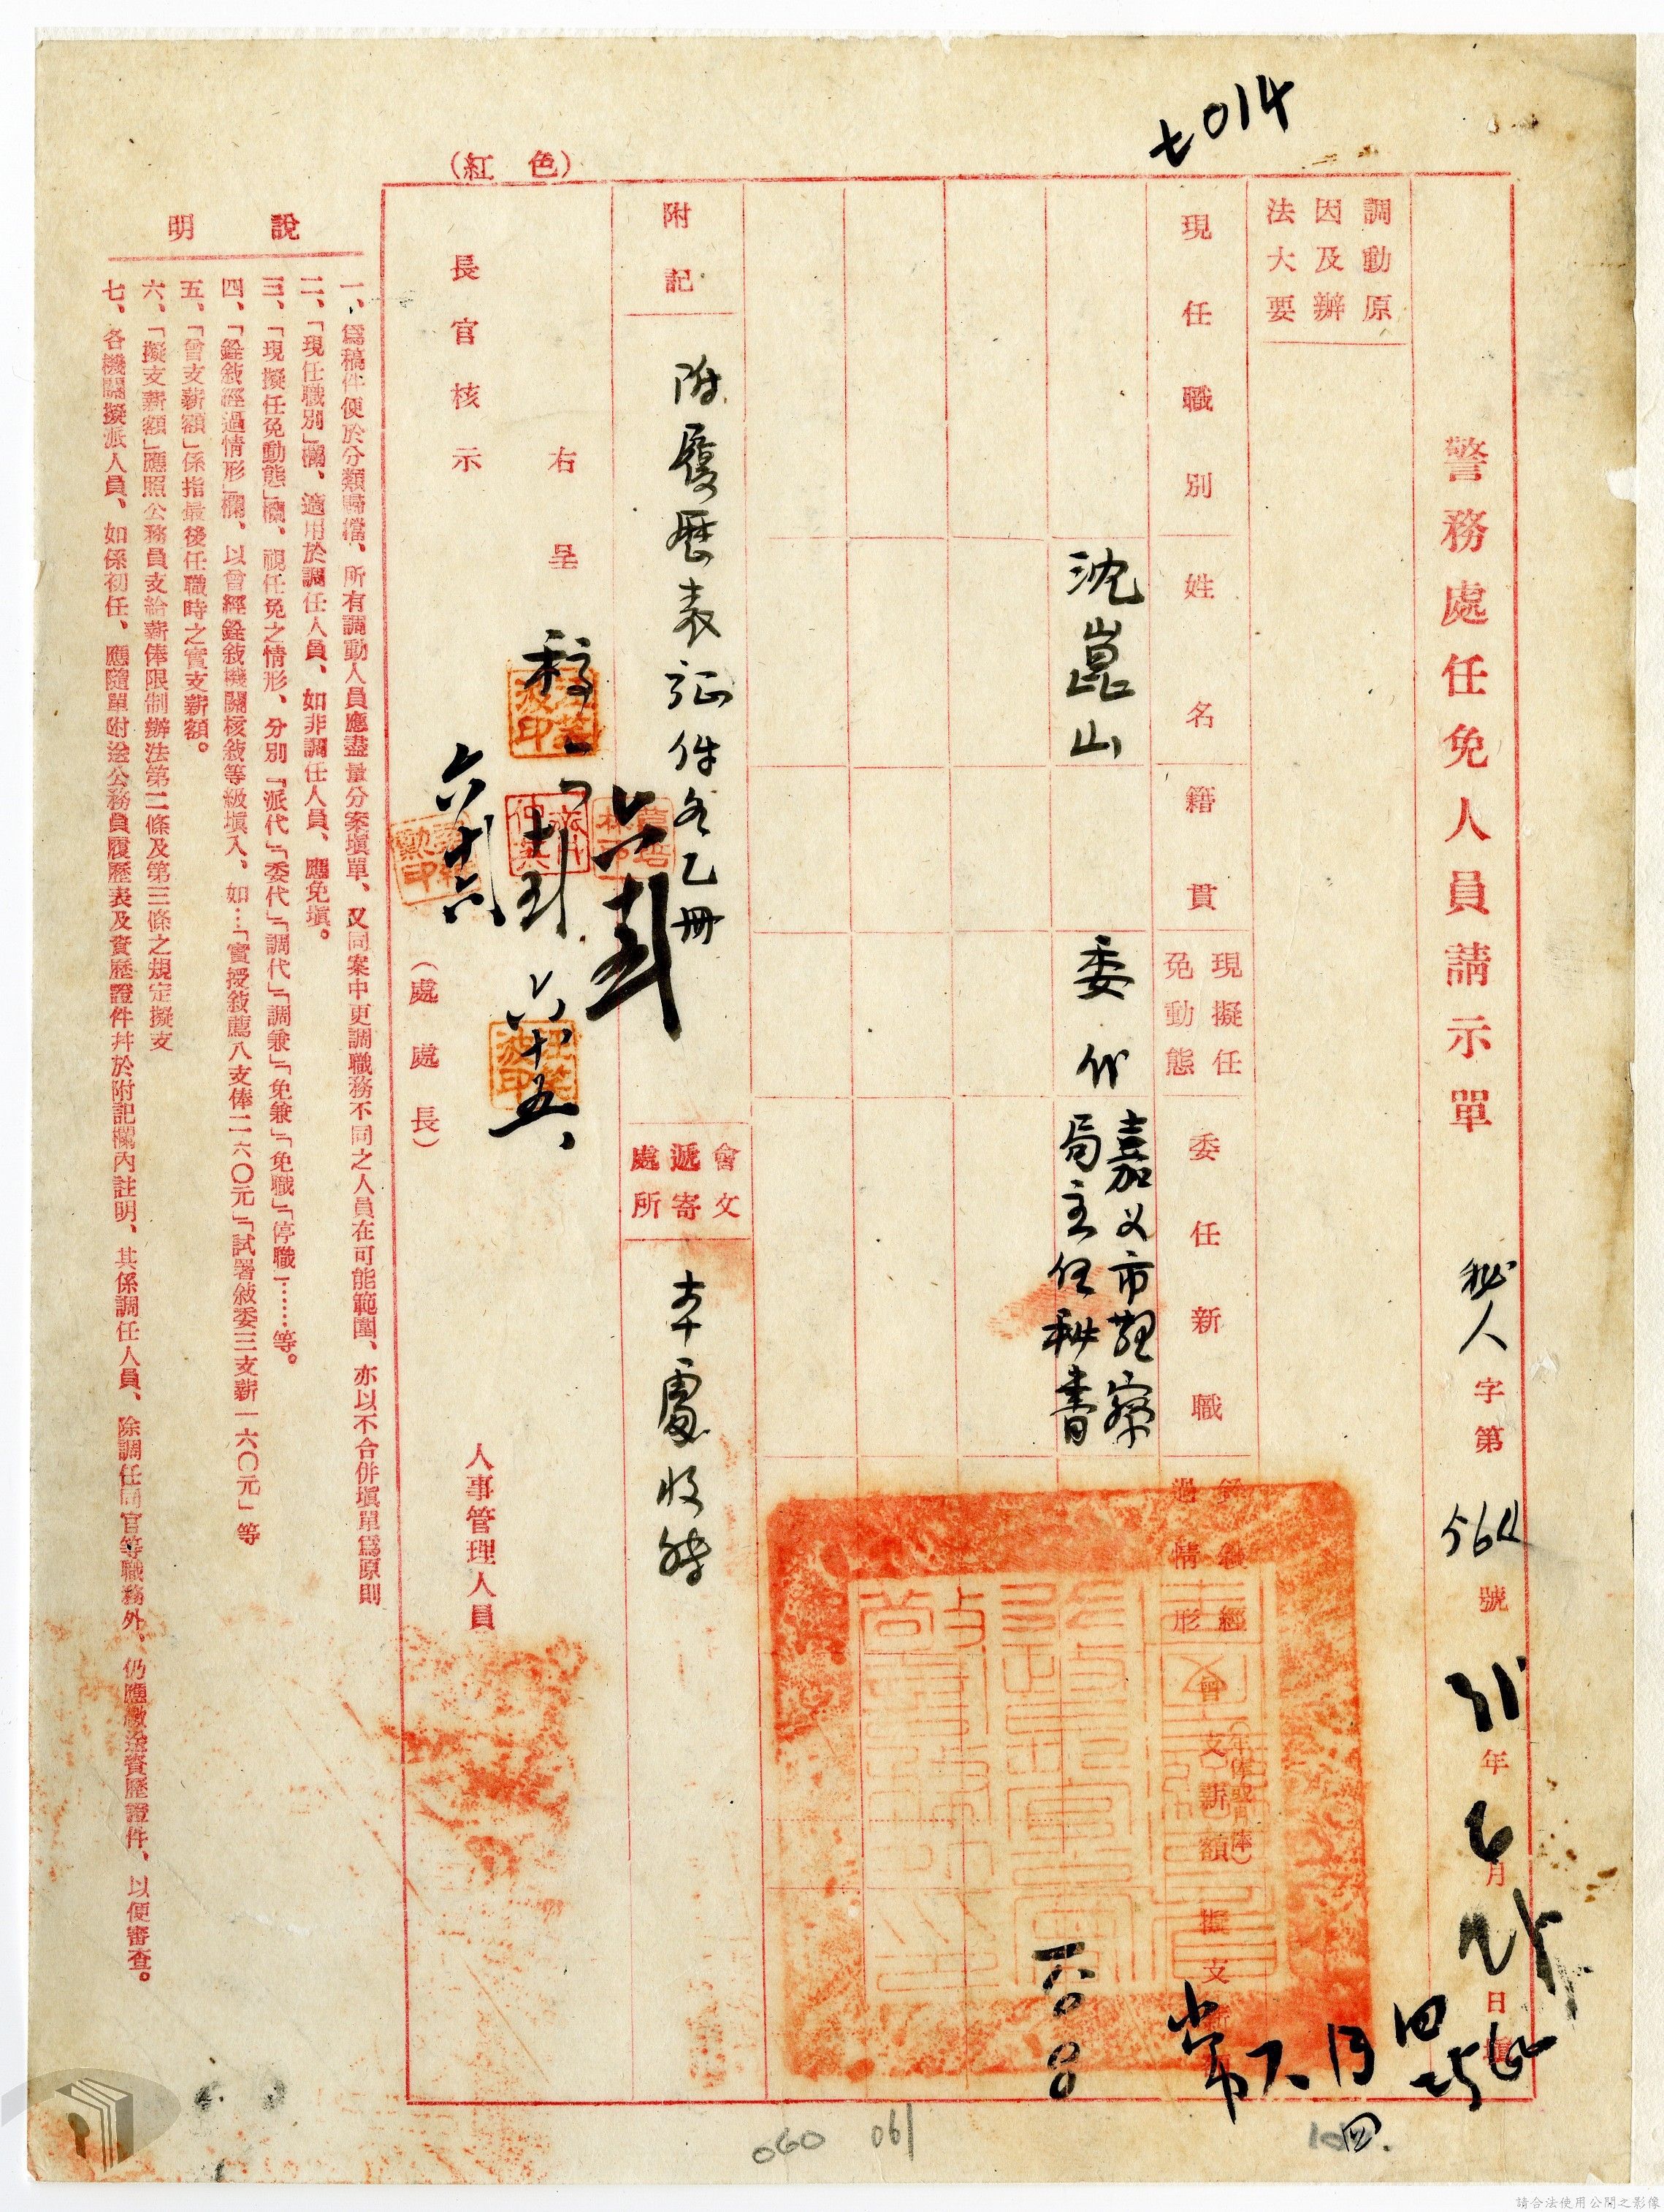 警務處任免人員請示單 秘人字第 號 年6月 日
調動原因及辦法大要
現任職別 姓名 籍貫 現擬任免動態 委任新職 銓敍經過情形 曾支薪額(年俸或月俸) 擬支
沈崑山 委代 嘉义市警察局主任秘書
附記 附履歷表証件各乙冊 會文遞寄處所 本處收轉
右呈
長官核示 (處處長) 人事管理人員
(紅色)
說明
一、爲稿件便於分類歸檔、所有調動人員應盡量分案塡單、又同案中更調職務不同之人員在可能範圍、亦以不合併塡單爲原則
二、「現任職別」欄、適用於調任人員、如非調任人員、應免塡。
三、「現擬任免動態」欄、視任免之情形、分別「派代」「委代」「調代」「調兼」「免兼」「免職」「停職」……等。
四、「銓敍經過情形」欄、以曾經銓敍機關核敍等級塡入、如…「實授敍薦八支俸二六〇元」「試署敍委三支薪一六〇元」等
五、「曾支薪額」係指最後任職時之實支薪額。
六、「擬支薪額」應照公務員支給薪俸限制辦法第二條及第三條之規定擬支
七、各機關擬派人員、如係初任、應隨單附送公務員履歷表及資歷證件幷於附記欄內註明、其係調任人員、除調任同官等職務外、仍應繳送資歷證件、以便審查。
014
060 061
請合法使用公開之影像